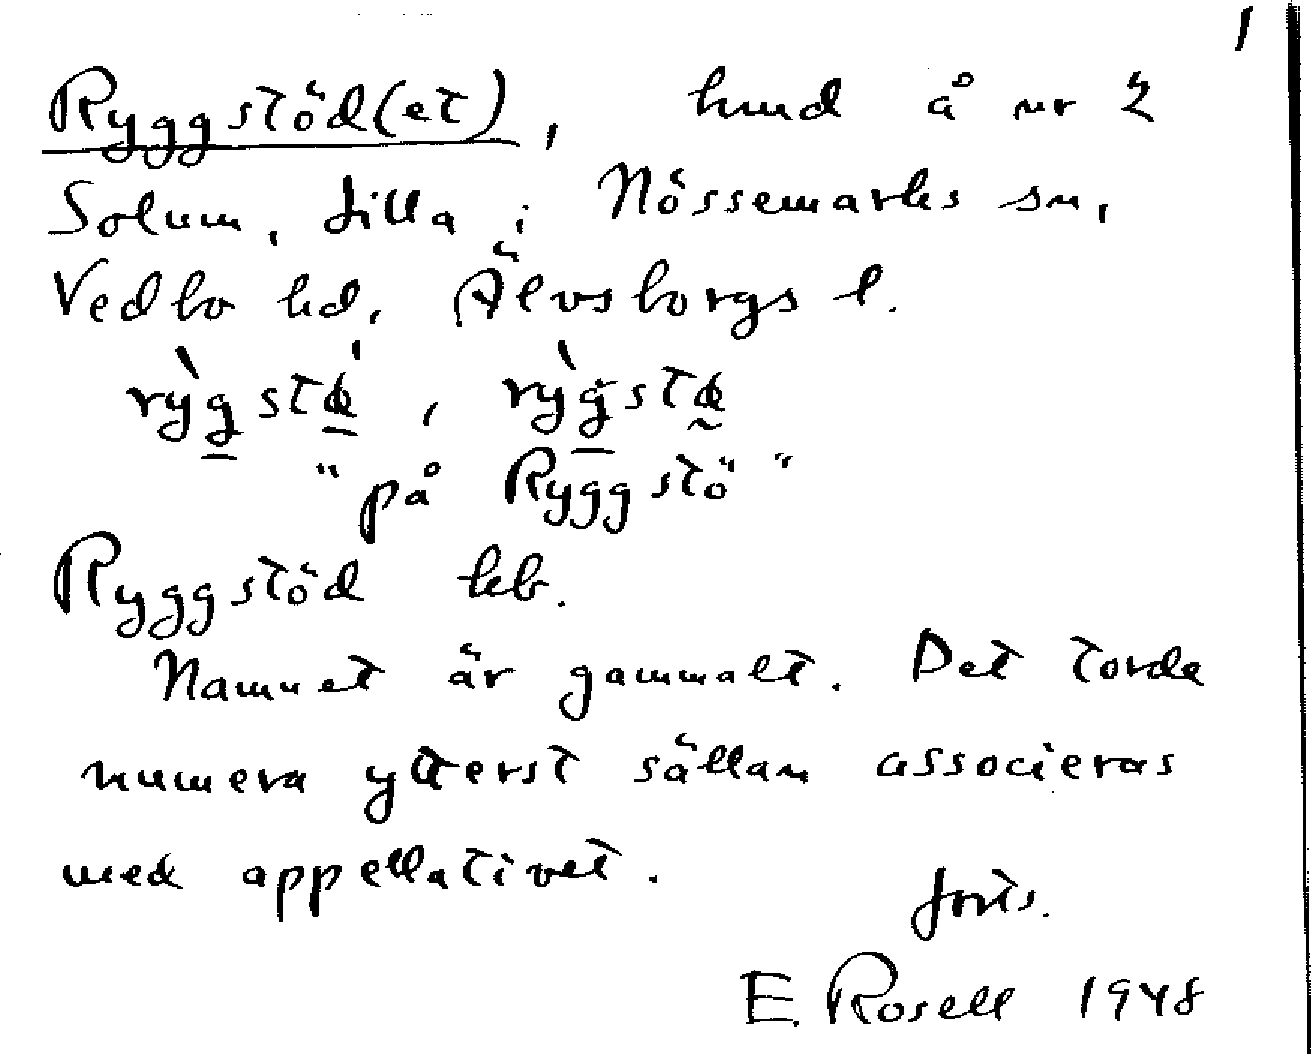 1
Ryggstöd(et), hmd å nr 2
Solum, Lilla i Nössemarks sn,
Vedbo hd, Älvsborgs l.
"på Ryggstö"
Ryggstöd kb.
Namnet är gammalt. Det torde
numera ytterst sällan associeras
med appellativet.
forts.
E. Rosell 1948